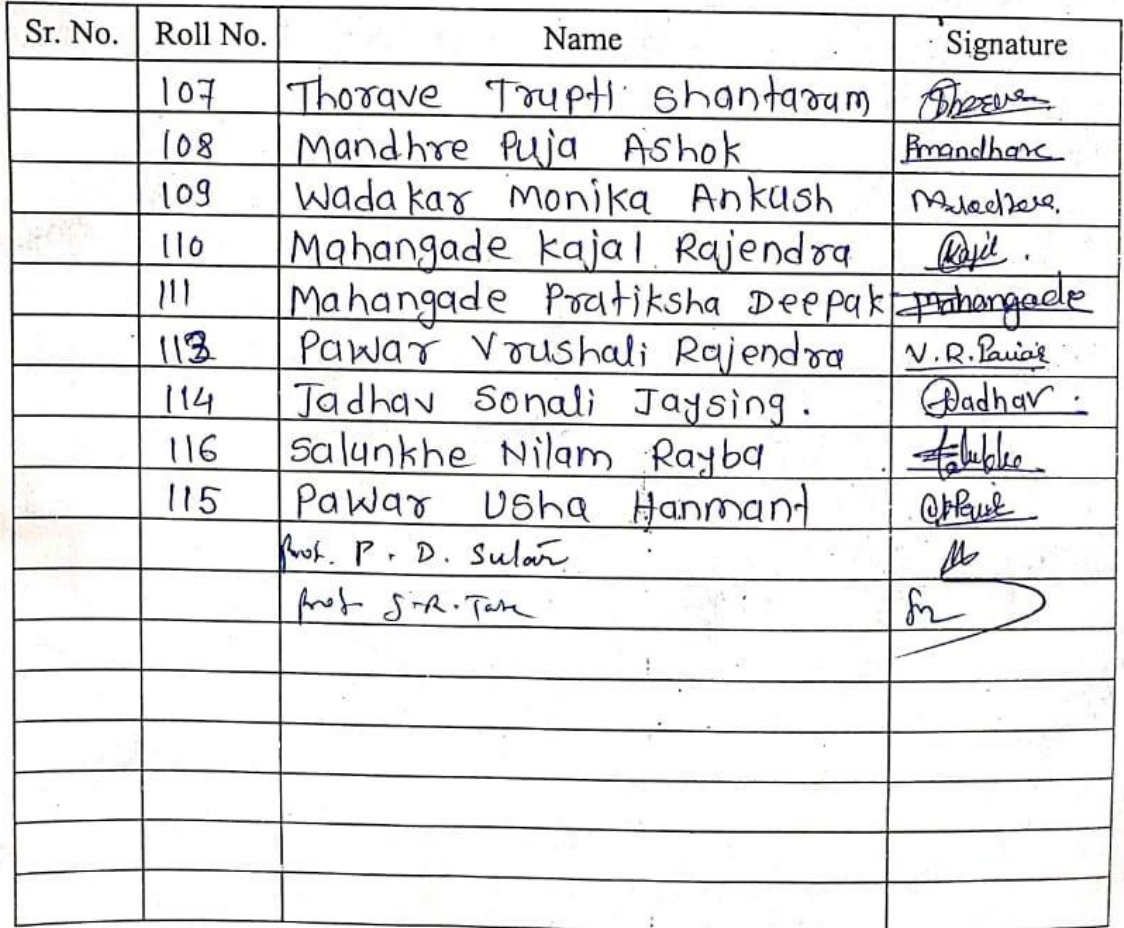 Sr. No. Roll No. Name Signature
107 Thorave Trupti Shantaram
108 Mandhre Puja Ashok Pmandhare
109 Wadakar Monika Ankush
110 Mahangade Kajal Rajendra Kajal.
111 Mahangade Pratiksha Deepak Mahangade
113 Pawar Vrushali Rajendra V.R.Pawar
114 Jadhav Sonali Jaysing. Jadhav.
116 Salunkhe Nilam Rayba
115 Pawar Usha Hanmant
Prof. P. D. Sutar
Prof S.R.